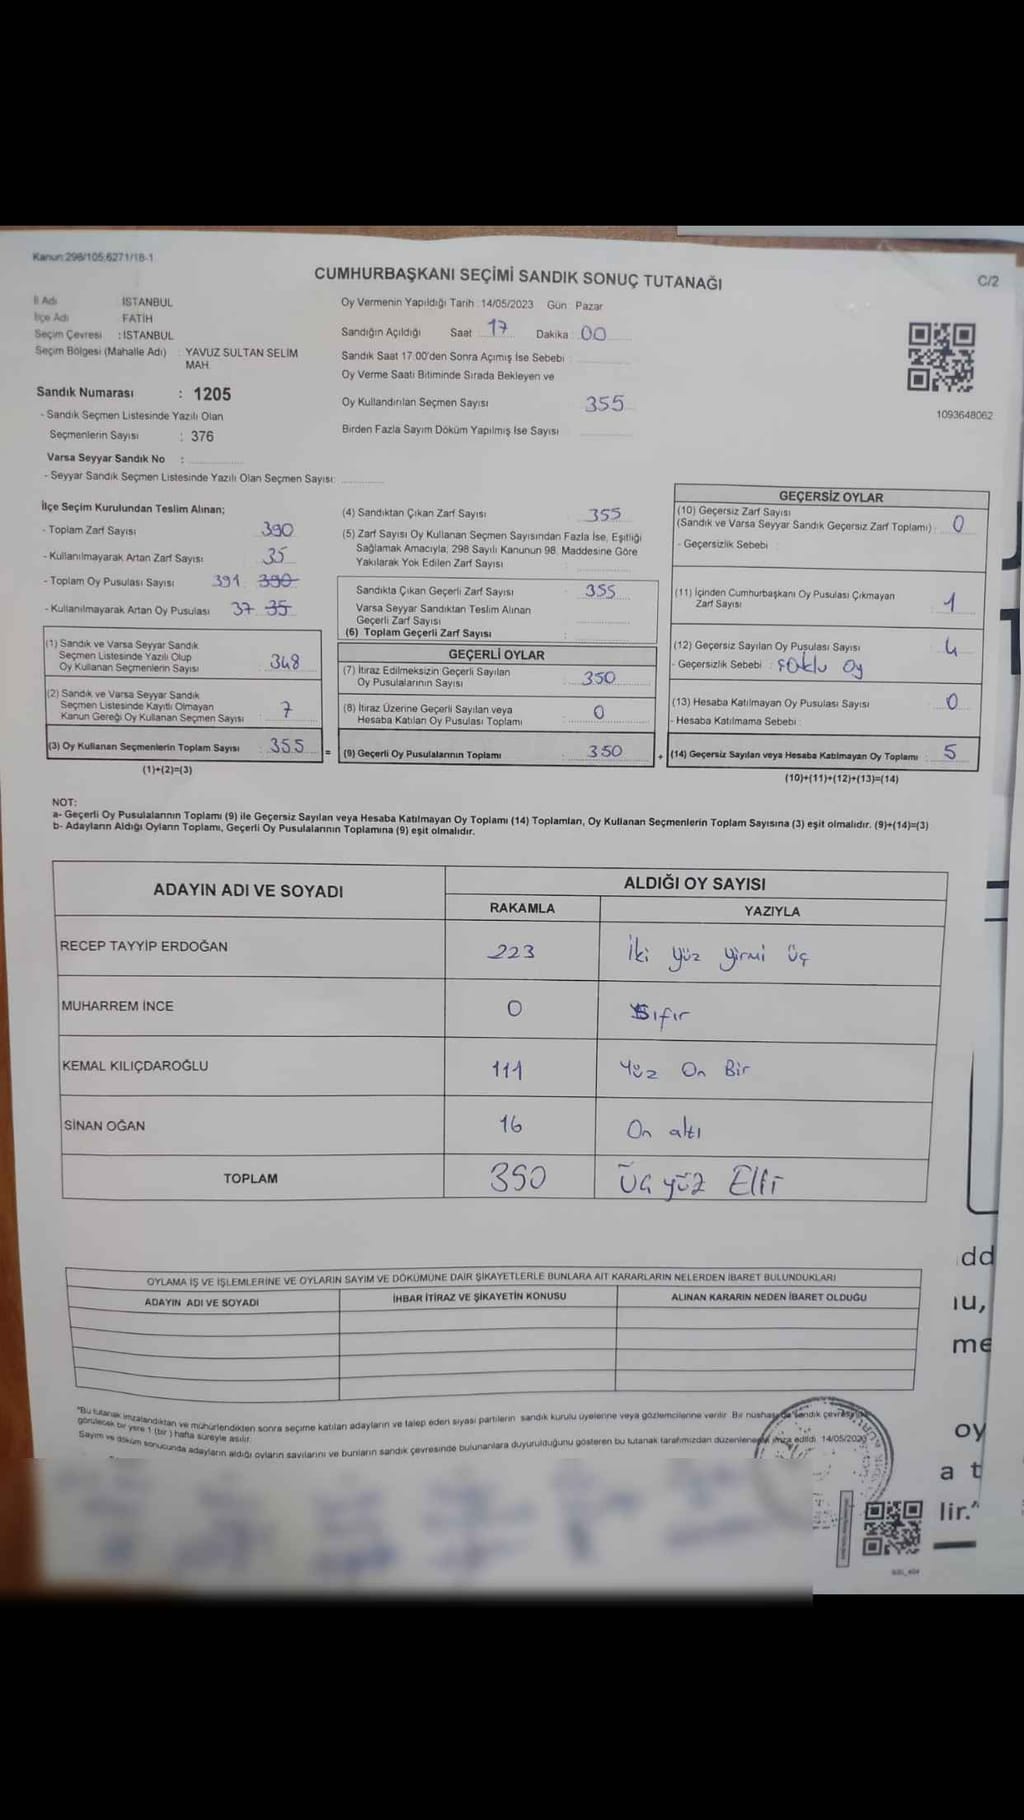 Kanun:298/105,6271/18-1
CUMHURBAŞKANI SEÇİMİ SANDIK SONUÇ TUTANAĞI
C/2
İl Adı İSTANBUL
İlçe Adı FATİH
Seçim Çevresi : İSTANBUL
Seçim Bölgesi (Mahalle Adı) : YAVUZ SULTAN SELİM
MAH.
Sandık Numarası : 1205
- Sandık Seçmen Listesinde Yazılı Olan
Seçmenlerin Sayısı : 376
Varsa Seyyar Sandık No :
- Seyyar Sandık Seçmen Listesinde Yazılı Olan Seçmen Sayısı:
Oy Vermenin Yapıldığı Tarih : 14/05/2023 Gün Pazar
Sandığın Açıldığı Saat 17 Dakika 00
Sandık Saat 17.00'den Sonra Açımış İse Sebebi
Oy Verme Saati Bitiminde Sırada Bekleyen ve
Oy Kullandırılan Seçmen Sayısı 355
Birden Fazla Sayım Döküm Yapılmış İse Sayısı
1093648062
İlçe Seçim Kurulundan Teslim Alınan;
- Toplam Zarf Sayısı 390
- Kullanılmayarak Artan Zarf Sayısı 35
- Toplam Oy Pusulası Sayısı 391 390
- Kullanılmayarak Artan Oy Pusulası 37 35
(1) Sandık ve Varsa Seyyar Sandık
Seçmen Listesinde Yazılı Olup
Oy Kullanan Seçmenlerin Sayısı 348
(2) Sandık ve Varsa Seyyar Sandık
Seçmen Listesinde Kayıtlı Olmayan
Kanun Gereği Oy Kullanan Seçmen Sayısı 7
(3) Oy Kullanan Seçmenlerin Toplam Sayısı : 355
(1)+(2)=(3)
(4) Sandıktan Çıkan Zarf Sayısı 355
(5) Zarf Sayısı Oy Kullanan Seçmen Sayısından Fazla İse, Eşitliği
Sağlamak Amacıyla, 298 Sayılı Kanunun 98. Maddesine Göre
Yakılarak Yok Edilen Zarf Sayısı
Sandıkta Çıkan Geçerli Zarf Sayısı : 355
Varsa Seyyar Sandıktan Teslim Alınan
Geçerli Zarf Sayısı
(6) Toplam Geçerli Zarf Sayısı :
GEÇERLİ OYLAR
(7) İtiraz Edilmeksizin Geçerli Sayılan
Oy Pusulalarının Sayısı 350
(8) İtiraz Üzerine Geçerli Sayılan veya
Hesaba Katılan Oy Pusulası Toplamı 0
= (9) Geçerli Oy Pusulalarının Toplamı 350
GEÇERSİZ OYLAR
(10) Geçersiz Zarf Sayısı
(Sandık ve Varsa Seyyar Sandık Geçersiz Zarf Toplamı) : 0
- Geçersizlik Sebebi :
(11) İçinden Cumhurbaşkanı Oy Pusulası Çıkmayan
Zarf Sayısı 1
(12) Geçersiz Sayılan Oy Pusulası Sayısı 4
- Geçersizlik Sebebi : Oy
(13) Hesaba Katılmayan Oy Pusulası Sayısı 0
- Hesaba Katılmama Sebebi :
+ (14) Geçersiz Sayılan veya Hesaba Katılmayan Oy Toplamı : 5
(10)+(11)+(12)+(13)=(14)
NOT:
a- Geçerli Oy Pusulalarının Toplamı (9) ile Geçersiz Sayılan veya Hesaba Katılmayan Oy Toplamı (14) Toplamları, Oy Kullanan Seçmenlerin Toplam Sayısına (3) eşit olmalıdır. (9)+(14)=(3)
b- Adayların Aldığı Oyların Toplamı, Geçerli Oy Pusulalarının Toplamına (9) eşit olmalıdır.
ADAYIN ADI VE SOYADI
ALDIĞI OY SAYISI
RAKAMLA YAZIYLA
RECEP TAYYİP ERDOĞAN 223 İki yüz yirmi üç
MUHARREM İNCE 0 Sıfır
KEMAL KILIÇDAROĞLU 111 Yüz On Bir
SİNAN OĞAN 16 On altı
TOPLAM 350 Üç yüz Elli
OYLAMA İŞ VE İŞLEMLERİNE VE OYLARIN SAYIM VE DÖKÜMÜNE DAİR ŞİKAYETLERLE BUNLARA AİT KARARLARIN NELERDEN İBARET BULUNDUKLARI
ADAYIN ADI VE SOYADI İHBAR İTİRAZ VE ŞİKAYETİN KONUSU ALINAN KARARIN NEDEN İBARET OLDUĞU
"Bu tutanak imzalandıktan ve mühürlendikten sonra seçime katılan adayların ve talep eden siyasi partilerin sandık kurulu üyelerine veya gözlemcilerine verilir. Bir nüshası da sandık çevresinde
görülecek bir yere 1 (bir) hafta süreyle asılır.
Sayım ve döküm sonucunda adayların aldığı oyların sayılarını ve bunların sandık çevresinde bulunanlara duyurulduğunu gösteren bu tutanak tarafımızdan düzenlenerek imza edildi. 14/05/2023
dd
ıu,
me
oy
a t
lir."